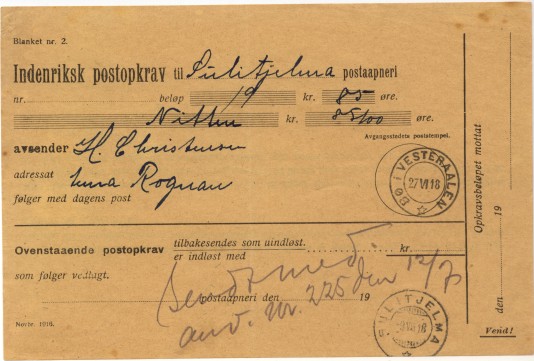 Blanket nr. 2.
Indenriksk postopkrav til Sulitjelma postaapneri
nr. beløp 19 kr. 85 øre.
Nitten kr. 85/00 øre.
Avgangsstedets poststempel.
avsender H. Christensen
adressat Rognan
følger med dagens post
BØ I VESTERAALEN
27 VI 18
Ovenstaaende postopkrav tilbakesendes som uindløst.
er indløst med kr.
som følger vedlagt.
Sendt med
postaapneri den 19
anv. Nr. 225 den 12/7
SULITJELMA
VII 18
Novbr. 1916.
Opkravsbeløpet mottat
den 19
Vend!